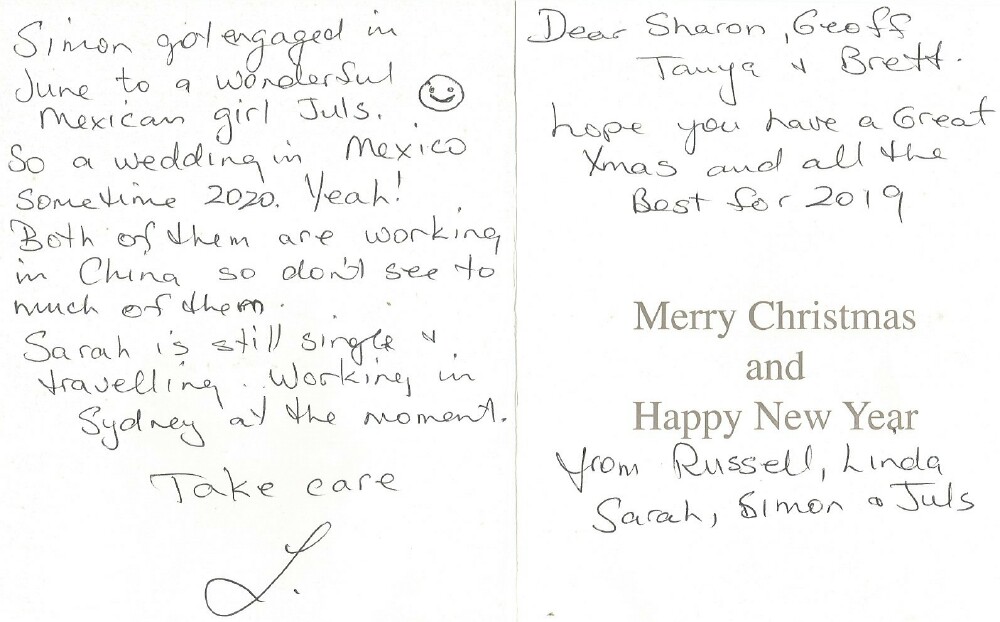 Simon got engaged in
June to a wonderful
Mexican girl Juls.
So a wedding in Mexico
sometime 2020. Yeah!
Both of them are working
in China so don't see to
much of them.
Sarah is still single &
travelling. Working in
Sydney at the moment.
Take care
L.
Dear Sharon, Geoff
Tanya & Brett.
hope you have a Great
Xmas and all the
Best for 2019
Merry Christmas
and
Happy New Year
from Russell, Linda
Sarah, Simon & Juls